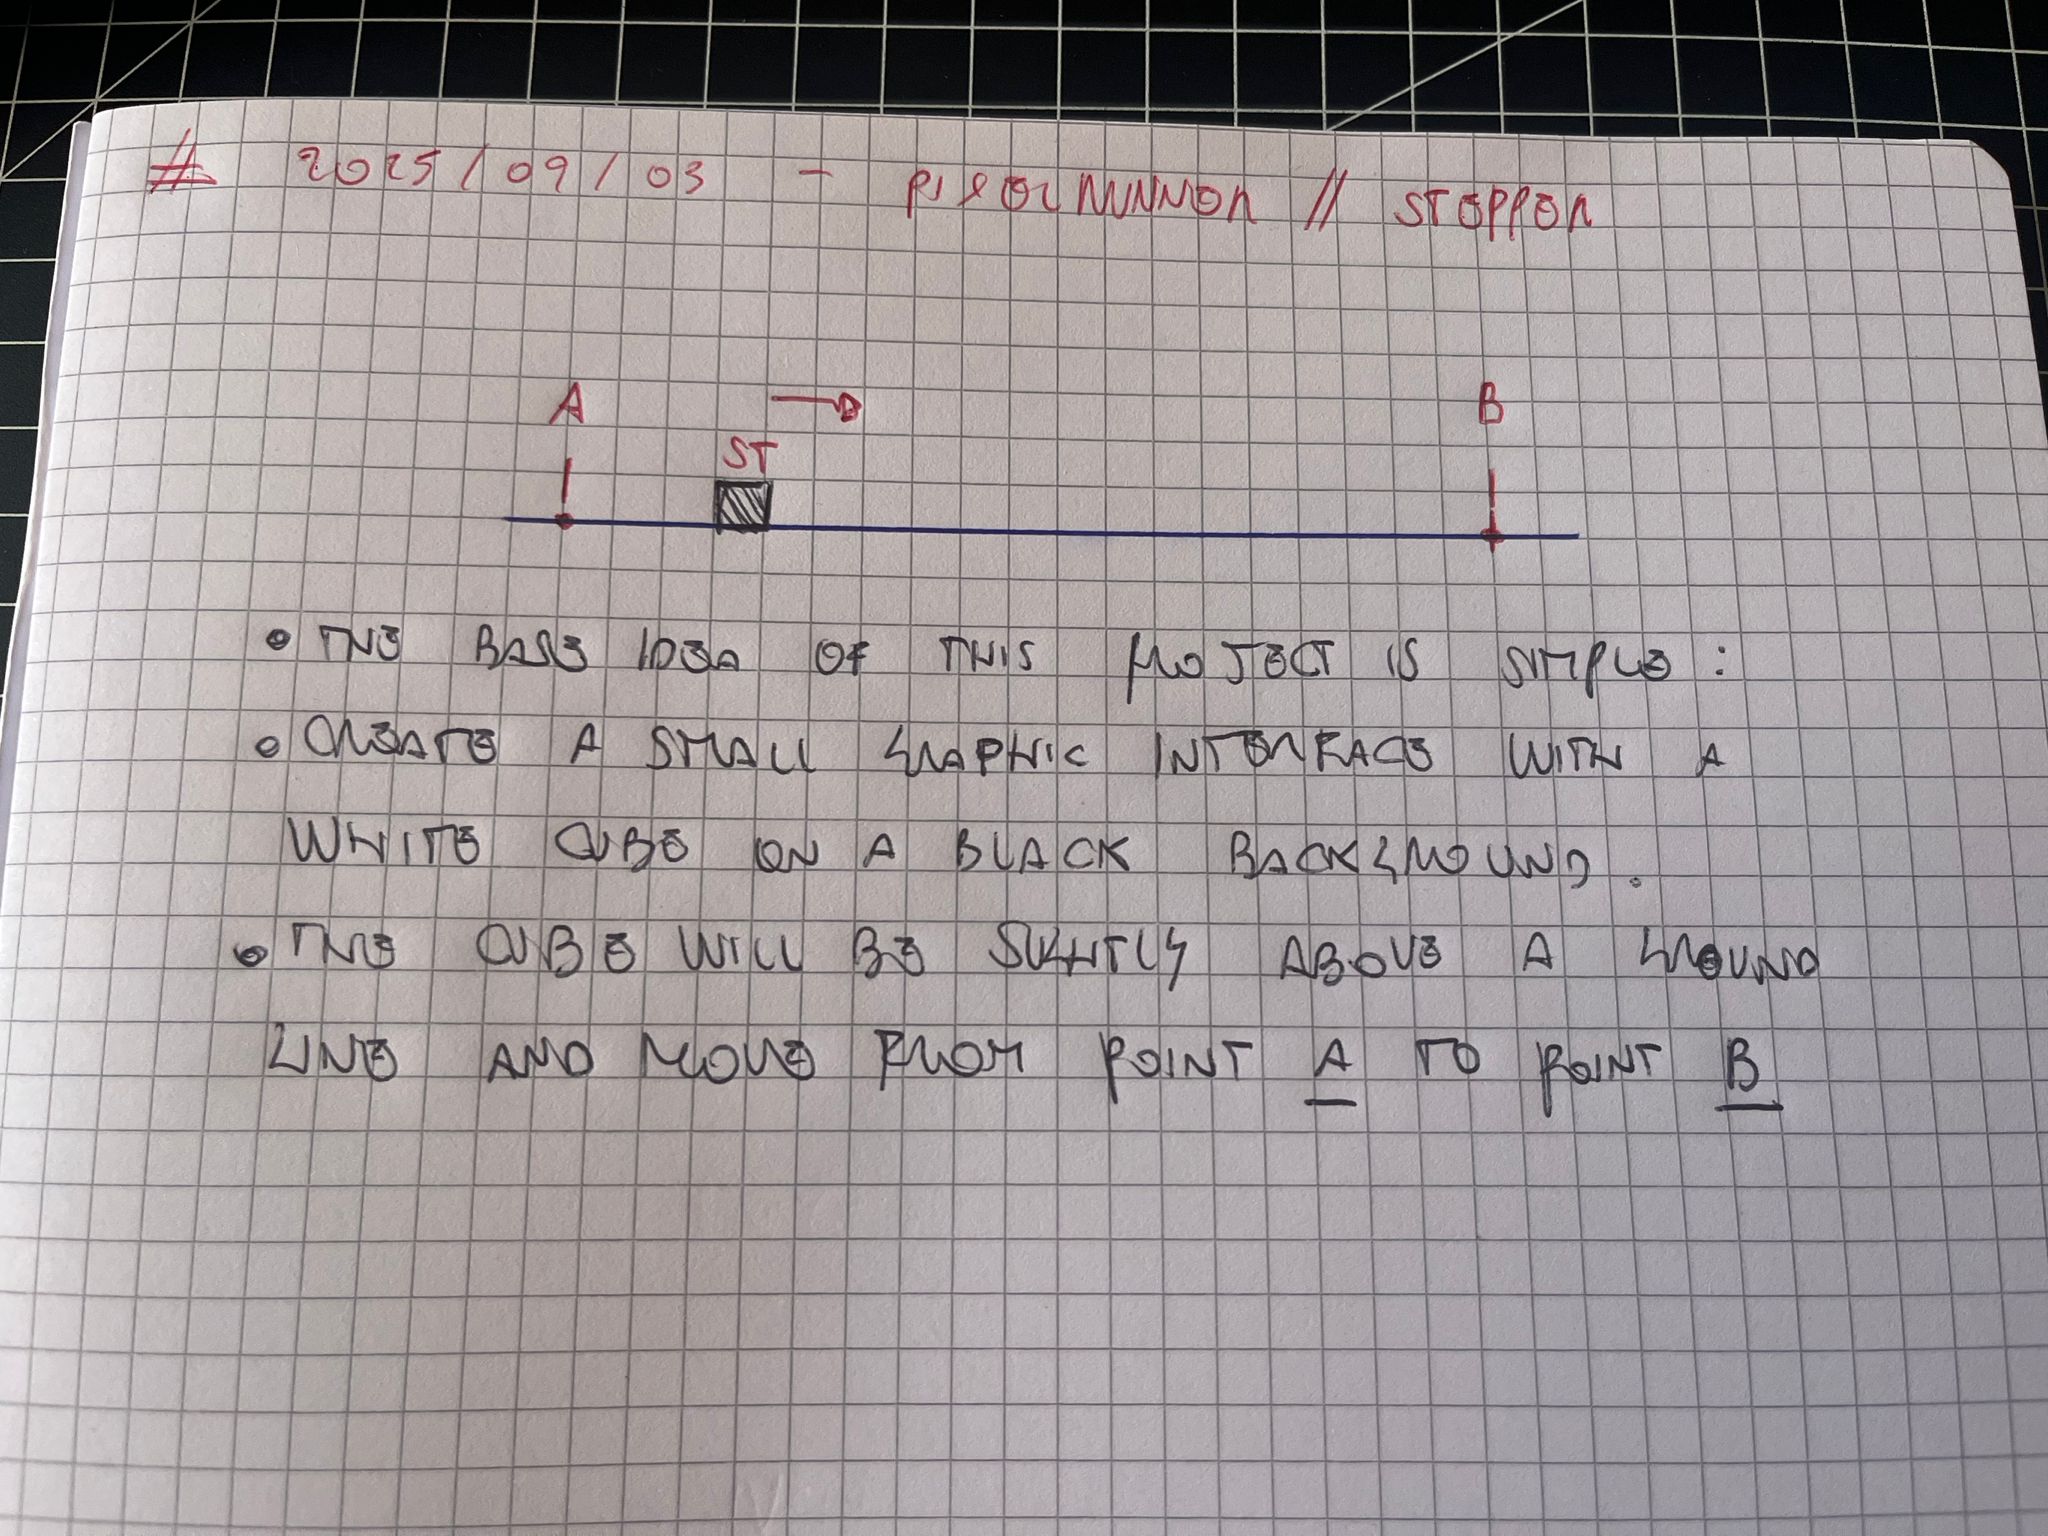 # 2025/09/03 - PIXELRUNNER // STEPPER
A B
ST
• THE BASE IDEA OF THIS PROJECT IS SIMPLE :
• CREATE A SMALL GRAPHIC INTERFACE WITH A
WHITE CUBE ON A BLACK BACKGROUND.
• THE CUBE WILL BE SLIGHTLY ABOVE A GROUND
LINE AND MOVE FROM POINT A TO POINT B